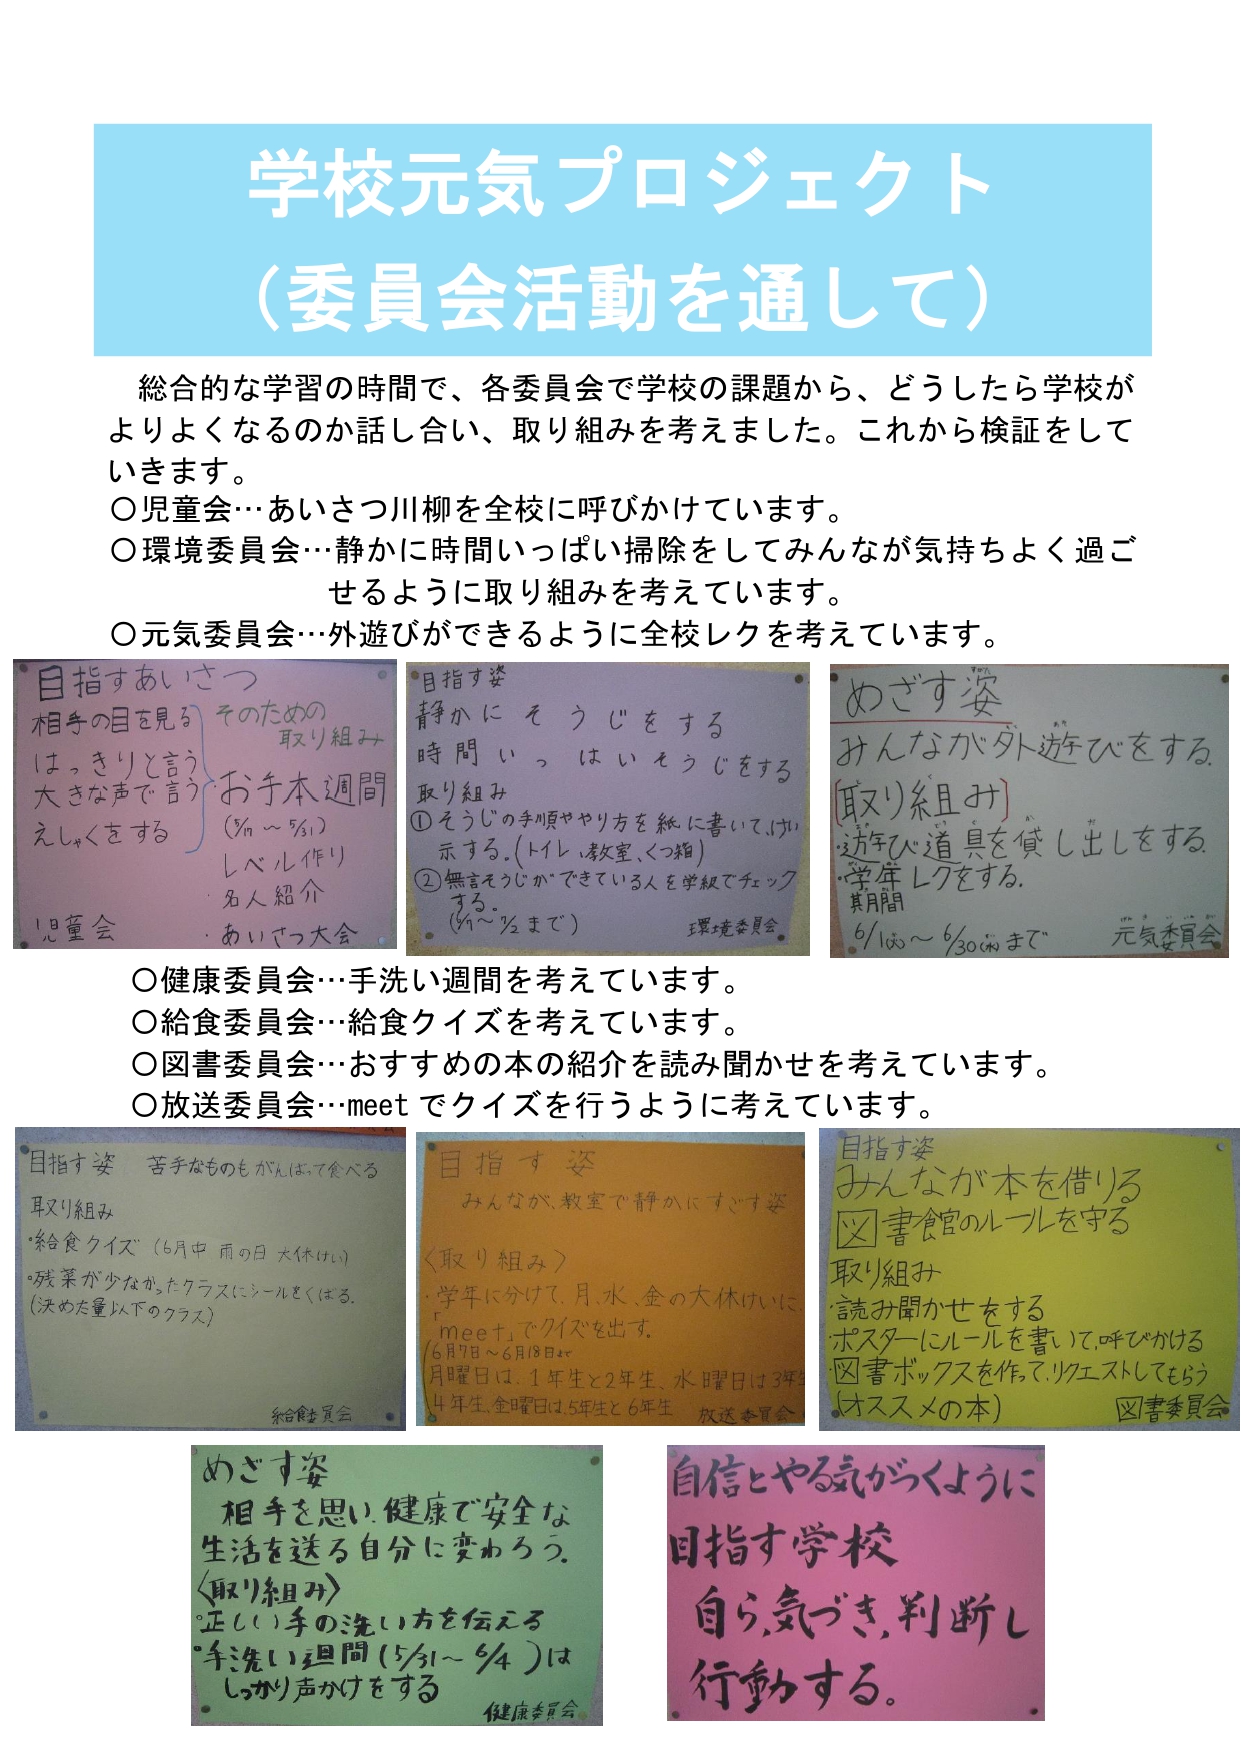 学校元気プロジェクト
（委員会活動を通して）
総合的な学習の時間で、各委員会で学校の課題から、どうしたら学校が
よりよくなるのか話し合い、取り組みを考えました。これから検証をして
いきます。
〇児童会…あいさつ川柳を全校に呼びかけています。
〇環境委員会…静かに時間いっぱい掃除をしてみんなが気持ちよく過ご
せるように取り組みを考えています。
〇元気委員会…外遊びができるように全校レクを考えています。
目指すあいさつ
相手の目を見る
はっきりと言う
大きな声で言う
えしゃくをする
児童会
そのための
取り組み
お手本週間
(5/17～5/31)
レベル作り
・名人紹介
・あいさつ大会
目指す姿
静かにそうじをする
時間いっぱいそうじをする
取り組み
①そうじの手順ややり方を紙に書いて、けい
示する。(トイレ、教室、くつ箱)
②無言そうじができている人を学級でチェック
する。
(6/7～7/2まで)
環境委員会
めざす姿
みんなが外遊びをする。
[取り組み]
・遊び道具を貸し出しをする。
・学年レクをする。
期間
6/1(火)～6/30(水)まで
元気委員会
〇健康委員会…手洗い週間を考えています。
〇給食委員会…給食クイズを考えています。
〇図書委員会…おすすめの本の紹介を読み聞かせを考えています。
〇放送委員会…meetでクイズを行うように考えています。
目指す姿 苦手なものもがんばって食べる
取り組み
・給食クイズ (6月中 雨の日 大休けい)
・残菜が少なかったクラスにシールをくばる。
(決めた量以下のクラス)
給食委員会
目指す姿
みんなが、教室で静かにすごす姿
〈取り組み〉
・学年に分けて、月、水、金の大休けいに、
「meet」でクイズを出す。
6月7日～6月18日まで
月曜日は、1年生と2年生、水曜日は3年生
4年生、金曜日は、5年生と6年生
放送委員会
目指す姿
みんなが本を借りる
図書館のルールを守る
取り組み
・読み聞かせをする
・ポスターにルールを書いて、呼びかける
・図書ボックスを作って、リクエストしてもらう
(オススメの本)
図書委員会
めざす姿
相手を思い、健康で安全な
生活を送る自分に変わろう。
〈取り組み〉
・正しい手の洗い方を伝える
・手洗い週間(5/31～6/4)は
しっかり声かけをする
健康委員会
自信とやる気がつくように
目指す学校
自ら、気づき、判断し
行動する。